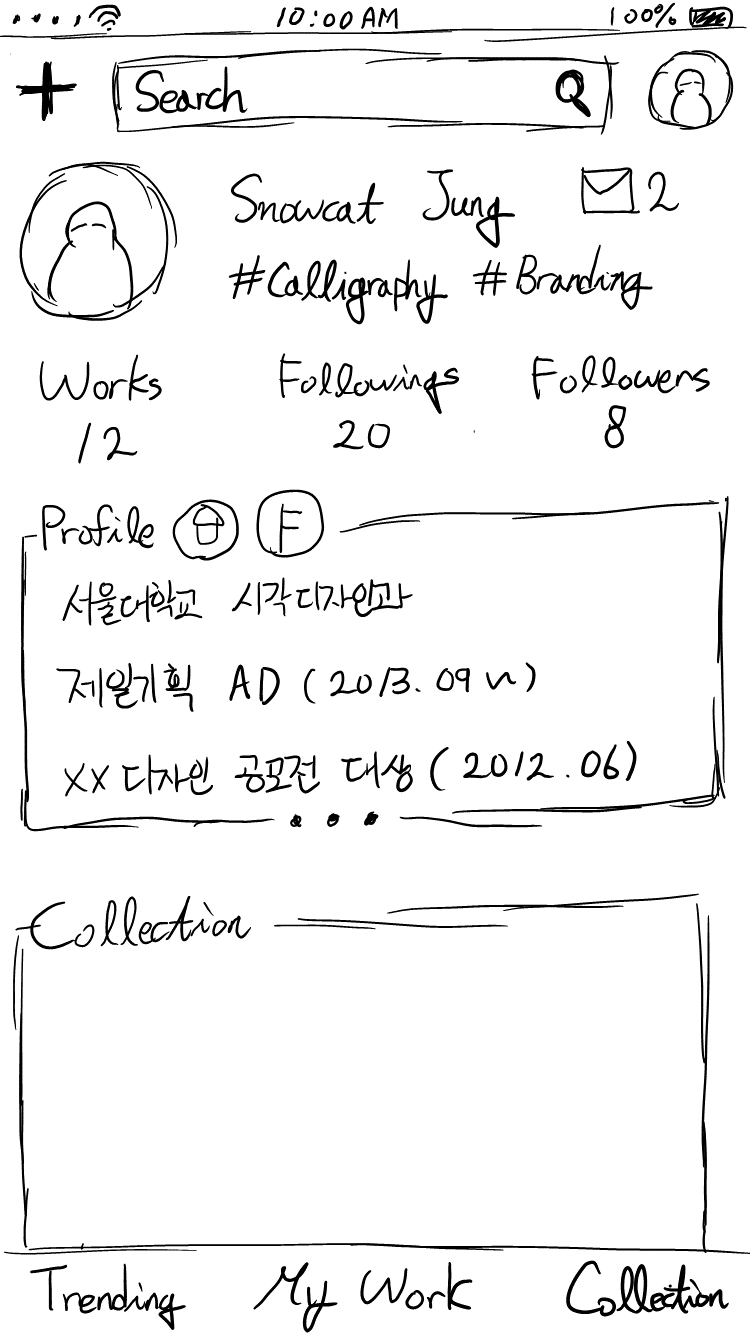 10:00 AM 100%
Search
Snowcat Jung 2
#Calligraphy #Branding
Works Followings Followers
12 20 8
Profile F
서울대학교 시각디자인과
제일기획 AD (2013.09~)
XX 디자인 공모전 대상 (2012.06)
Collection
Trending My Work Collection